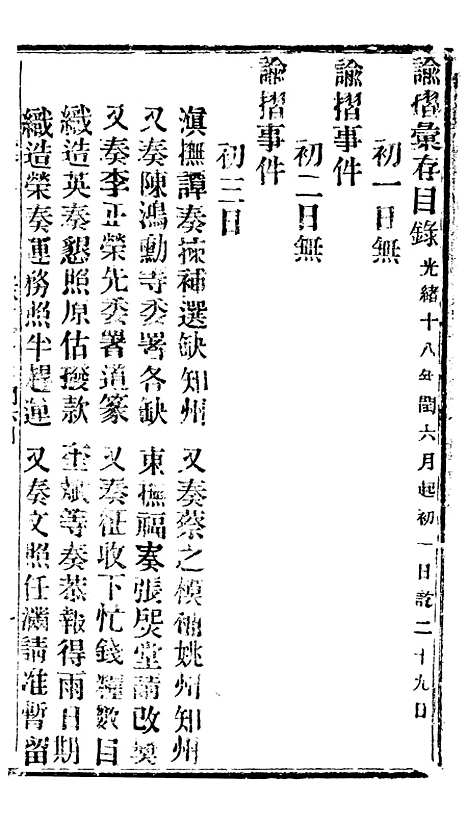 諭摺彙存目錄 光緒十八年閏六月起初一日訖二十九日
初一日無
諭摺事件
初二日無
諭摺事件
初三日
滇撫譚奏揀補選缺知州 又奏蔡之模補姚州知州
又奏陳鴻勳等委署各缺 東撫福奏張煐堂請改奬
又奏李正榮先委署道篆 又奏征收下忙錢糧數目
織造英奏懇照原估撥款 奎斌等奏恭報得雨日期
織造榮奏運務照半趕運 又奏文照任滿請准暫留